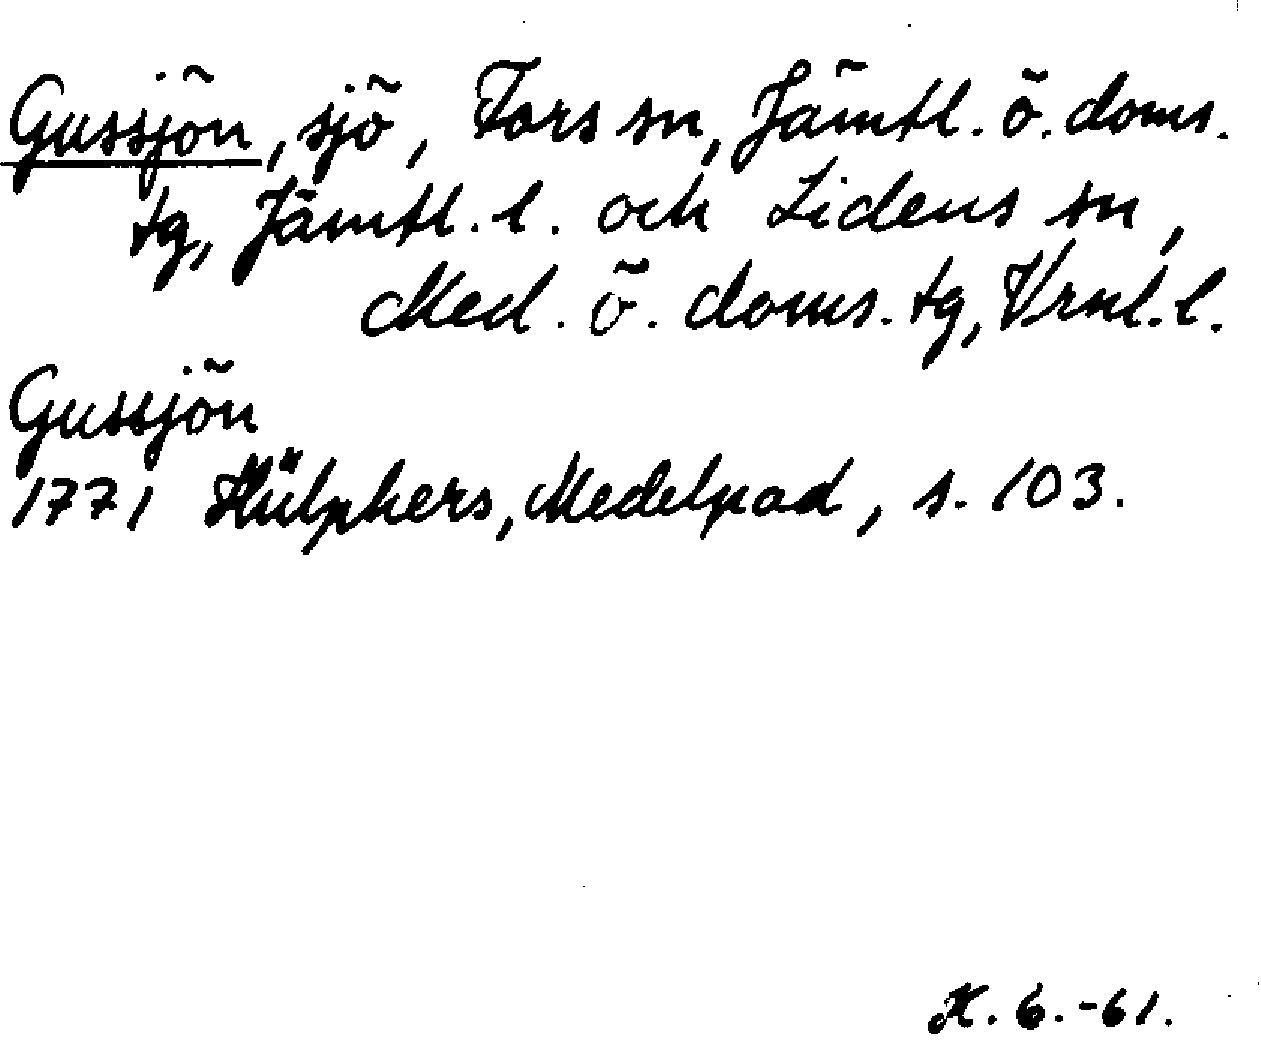 Gussjön, sjö, Fors sn, Jämtl. ö. doms.
tg, Jämtl. l. och Lidens sn,
Med. ö. doms. tg, Vrnl. l.
Gussjön
1771 Hülphers, Medelpad, s. 103.
H. 6.-61.